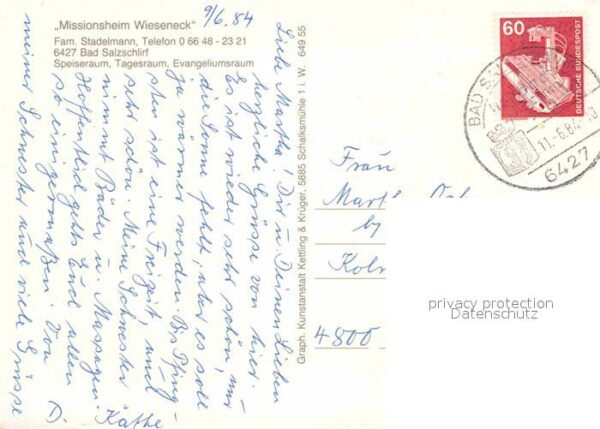 „Missionsheim Wieseneck"
Fam. Stadelmann, Telefon 0 66 48 - 23 21
6427 Bad Salzschlirf
Speiseraum, Tagesraum, Evangeliumsraum
9/6.84
Liebe Martha! Dir u Deinen Lieben
herzliche Grüsse von hier.
Es ist wieder sehr schön, nur
die Sonne fehlt, aber es soll
ja wärmer werden. Bis Pfing-
sten ist eine Freizeit, und
sehr schön. Meine Schwester
nimmt Bäder u. Massagen.
Hoffentlich gehts Euch allen
so einigermaßen. Von
meiner Schwester und viele Grüsse
D. Käthe
Graph. Kunstanstalt Kettling & Krüger, 5885 Schalksmühle 1 i. W. 649 55
60
DEUTSCHE BUNDESPOST
BAD
11.-6.84
6427
Frau
by
4800
privacy protection
Datenschutz